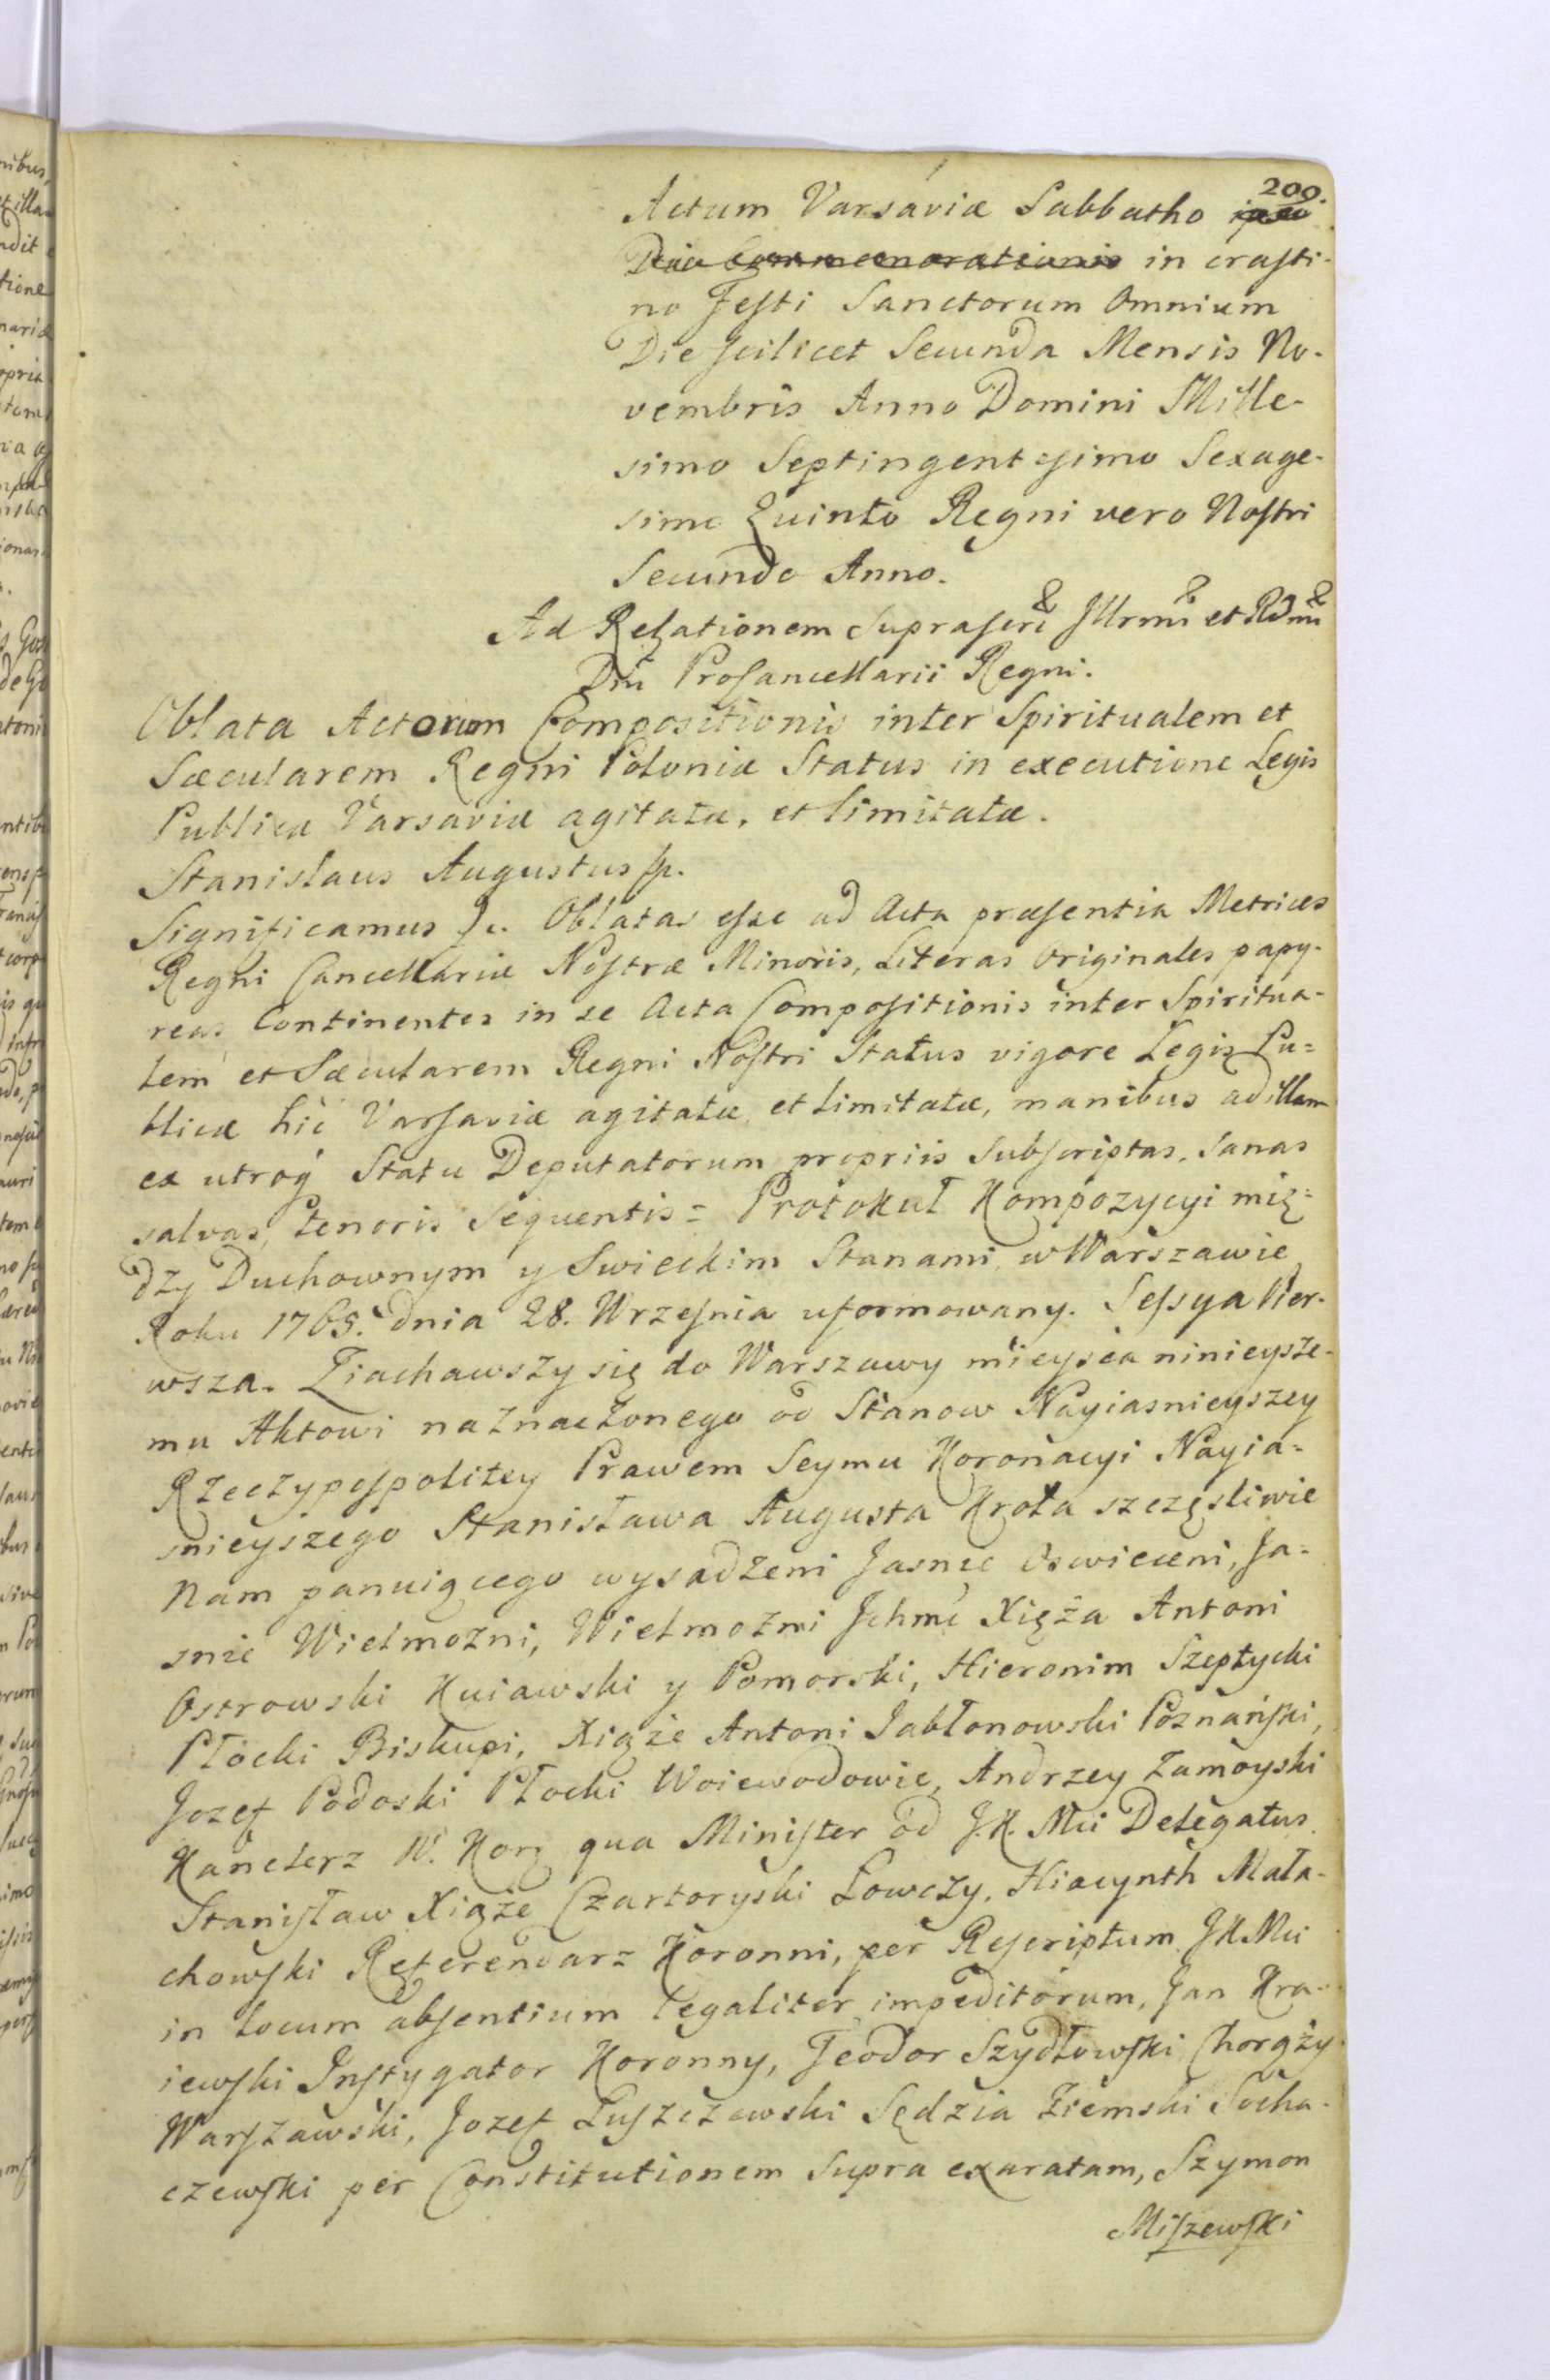 200.
Actum Varsaviæ Sabbatho ipso
Die Commemorationis in crasti-
no Festi Sanctorum Omnium
Die scilicet Secunda Mensis No-
vembris Anno Domini Mille-
simo Septingentesimo Sexage-
simo Quinto Regni vero Nostri
Secundo Anno.
Ad Relationem Suprascri Illrmi et Rdmi
Dni Procancellarii Regni.
Oblata Actorum Compositionis inter Spiritualem et
Sæcularem Regni Poloniæ Status in executione Legis
Publicæ Varsaviæ agitatæ, et limitatæ.
Stanislaus Augustus pp.
Significamus &c. Oblatas esse ad Acta præsentia Metrices
Regni Cancellariæ Nostræ Minoris, Literas Originales papy-
reas Continentes in se Acta Compositionis inter Spiritua-
lem et Sæcularem Regni Nostri Status vigore Legis Pu=
blicæ hic Varsaviæ agitatæ et limitatæ, manibus ad illam
ex utroq Statu Deputatorum propriis Subscriptas, Sanas
salvas, tenoris Sequentis = Protokuł Kompozycyi mię=
dzy Duchownym y Swieckim Stanami w Warszawie
Roku 1765. dnia 28. Wrzesnia uformowany. Sessya Pier-
wsza. Ziachawszy się do Warszawy mieysca ninieysze-
mu Aktowi naznaczonego od Stanow Nayiasnieyszey
Rzeczypospolitey Prawem Seymu Koronacyi Nayia=
snieyszego Stanisława Augusta Krola szczęsliwie
Nam panuiącego wysadzeni Jasnie Oswieceni, Ja=
snie Wielmozni, Wielmozni Ichmć Xięża Antoni
Ostrowski Kuiawski y Pomorski, Hieronim Szeptycki
Płocki Biskupi, Xiąże Antoni Jabłonowski Poznański,
Jozef Podoski Płocki Woiewodowie, Andrzey Zamoyski
Kanclerz W. Kor. qua Minister od J.K. Mci Delegatus
Stanisław Xiąże Czartoryski Łowczy, Hiacynth Mała-
chowski Referendarz Koronni, per Rescriptum JKMci
in locum absentium legaliter impeditorum, Jan Kra-
iewski Instygator Koronny, Teodor Szydłowski Chorąży
Warszawski, Jozef Łuszczewski Sędzia Ziemski Socha-
czewski per Constitutionem Supra exaratam, Szymon
Miszewski